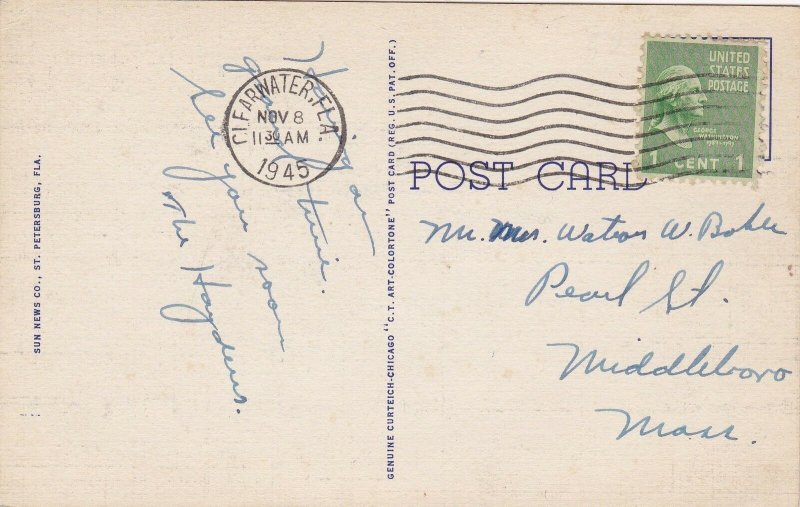 Having a
grand time.
See you soon
The Haydens.
CLEARWATER, FLA.
NOV 8
11 30 AM
1945
UNITED
STATES
POSTAGE
GEORGE
WASHINGTON
1789-1797
1 CENT 1
POST CARD
Mr. Mrs. Watson W. Baker
Pearl St.
Middleboro
Mass.
SUN NEWS CO., ST. PETERSBURG, FLA.
GENUINE CURTEICH-CHICAGO "C.T. ART-COLORTONE" POST CARD (REG. U.S. PAT. OFF.)